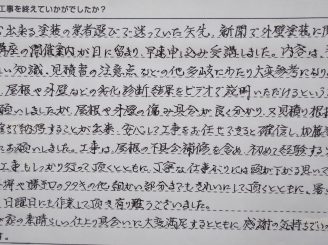 工事を終えていかがでしたか？
出来る塗装の業者選びで迷っていた矢先、新聞で外壁塗装に
講座の開催案内が目に留まり、早速申し込み受講しました。内容は、
しい知識、見積書の注意点などの他多岐にわたり大変参考になり
屋根や外壁などの劣化診断結果をビデオで説明いただけるという
願いしましたが、屋根や外壁の傷み具合が良く分かり、又見積り根
で納得することが出来、安心して工事をお任せできると確信し、加
にお願いしました。工事は、屋根の下具合補修を含め、初めて経験する
工事もしっかり行って頂くとともに、丁寧な仕事ぶりには頭が下がる思いで
や勝手口のタタキの他細かい部分までもきれいにして頂くとともに、
日曜日にも作業して頂き有り難うございました。
の素晴らしい仕上り具合いに大変満足するとともに感謝の気持ちで
す。